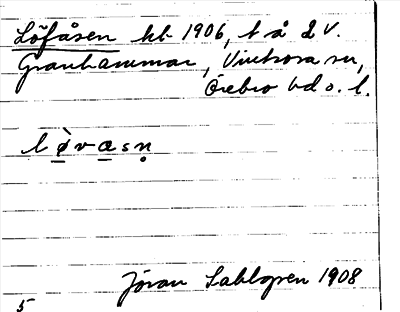 Löfåsen hb 1906, t å 2 v.
Granhammar, Vintrosa sn,
Örebro hd o. l.
lø̀vasn̥
Jöran Sahlgren 1908
5